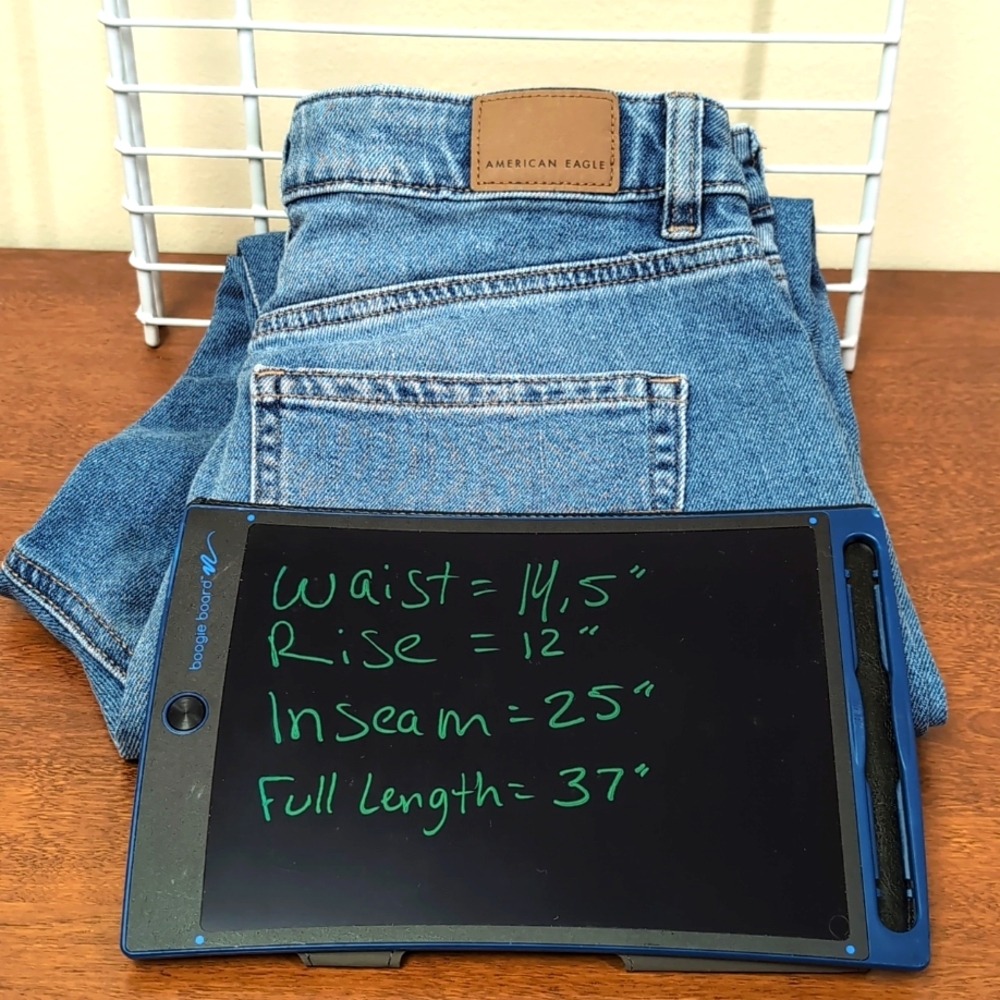 AMERICAN EAGLE
boogie board
Waist = 14,5"
Rise = 12"
Inseam = 25"
Full Length = 37"